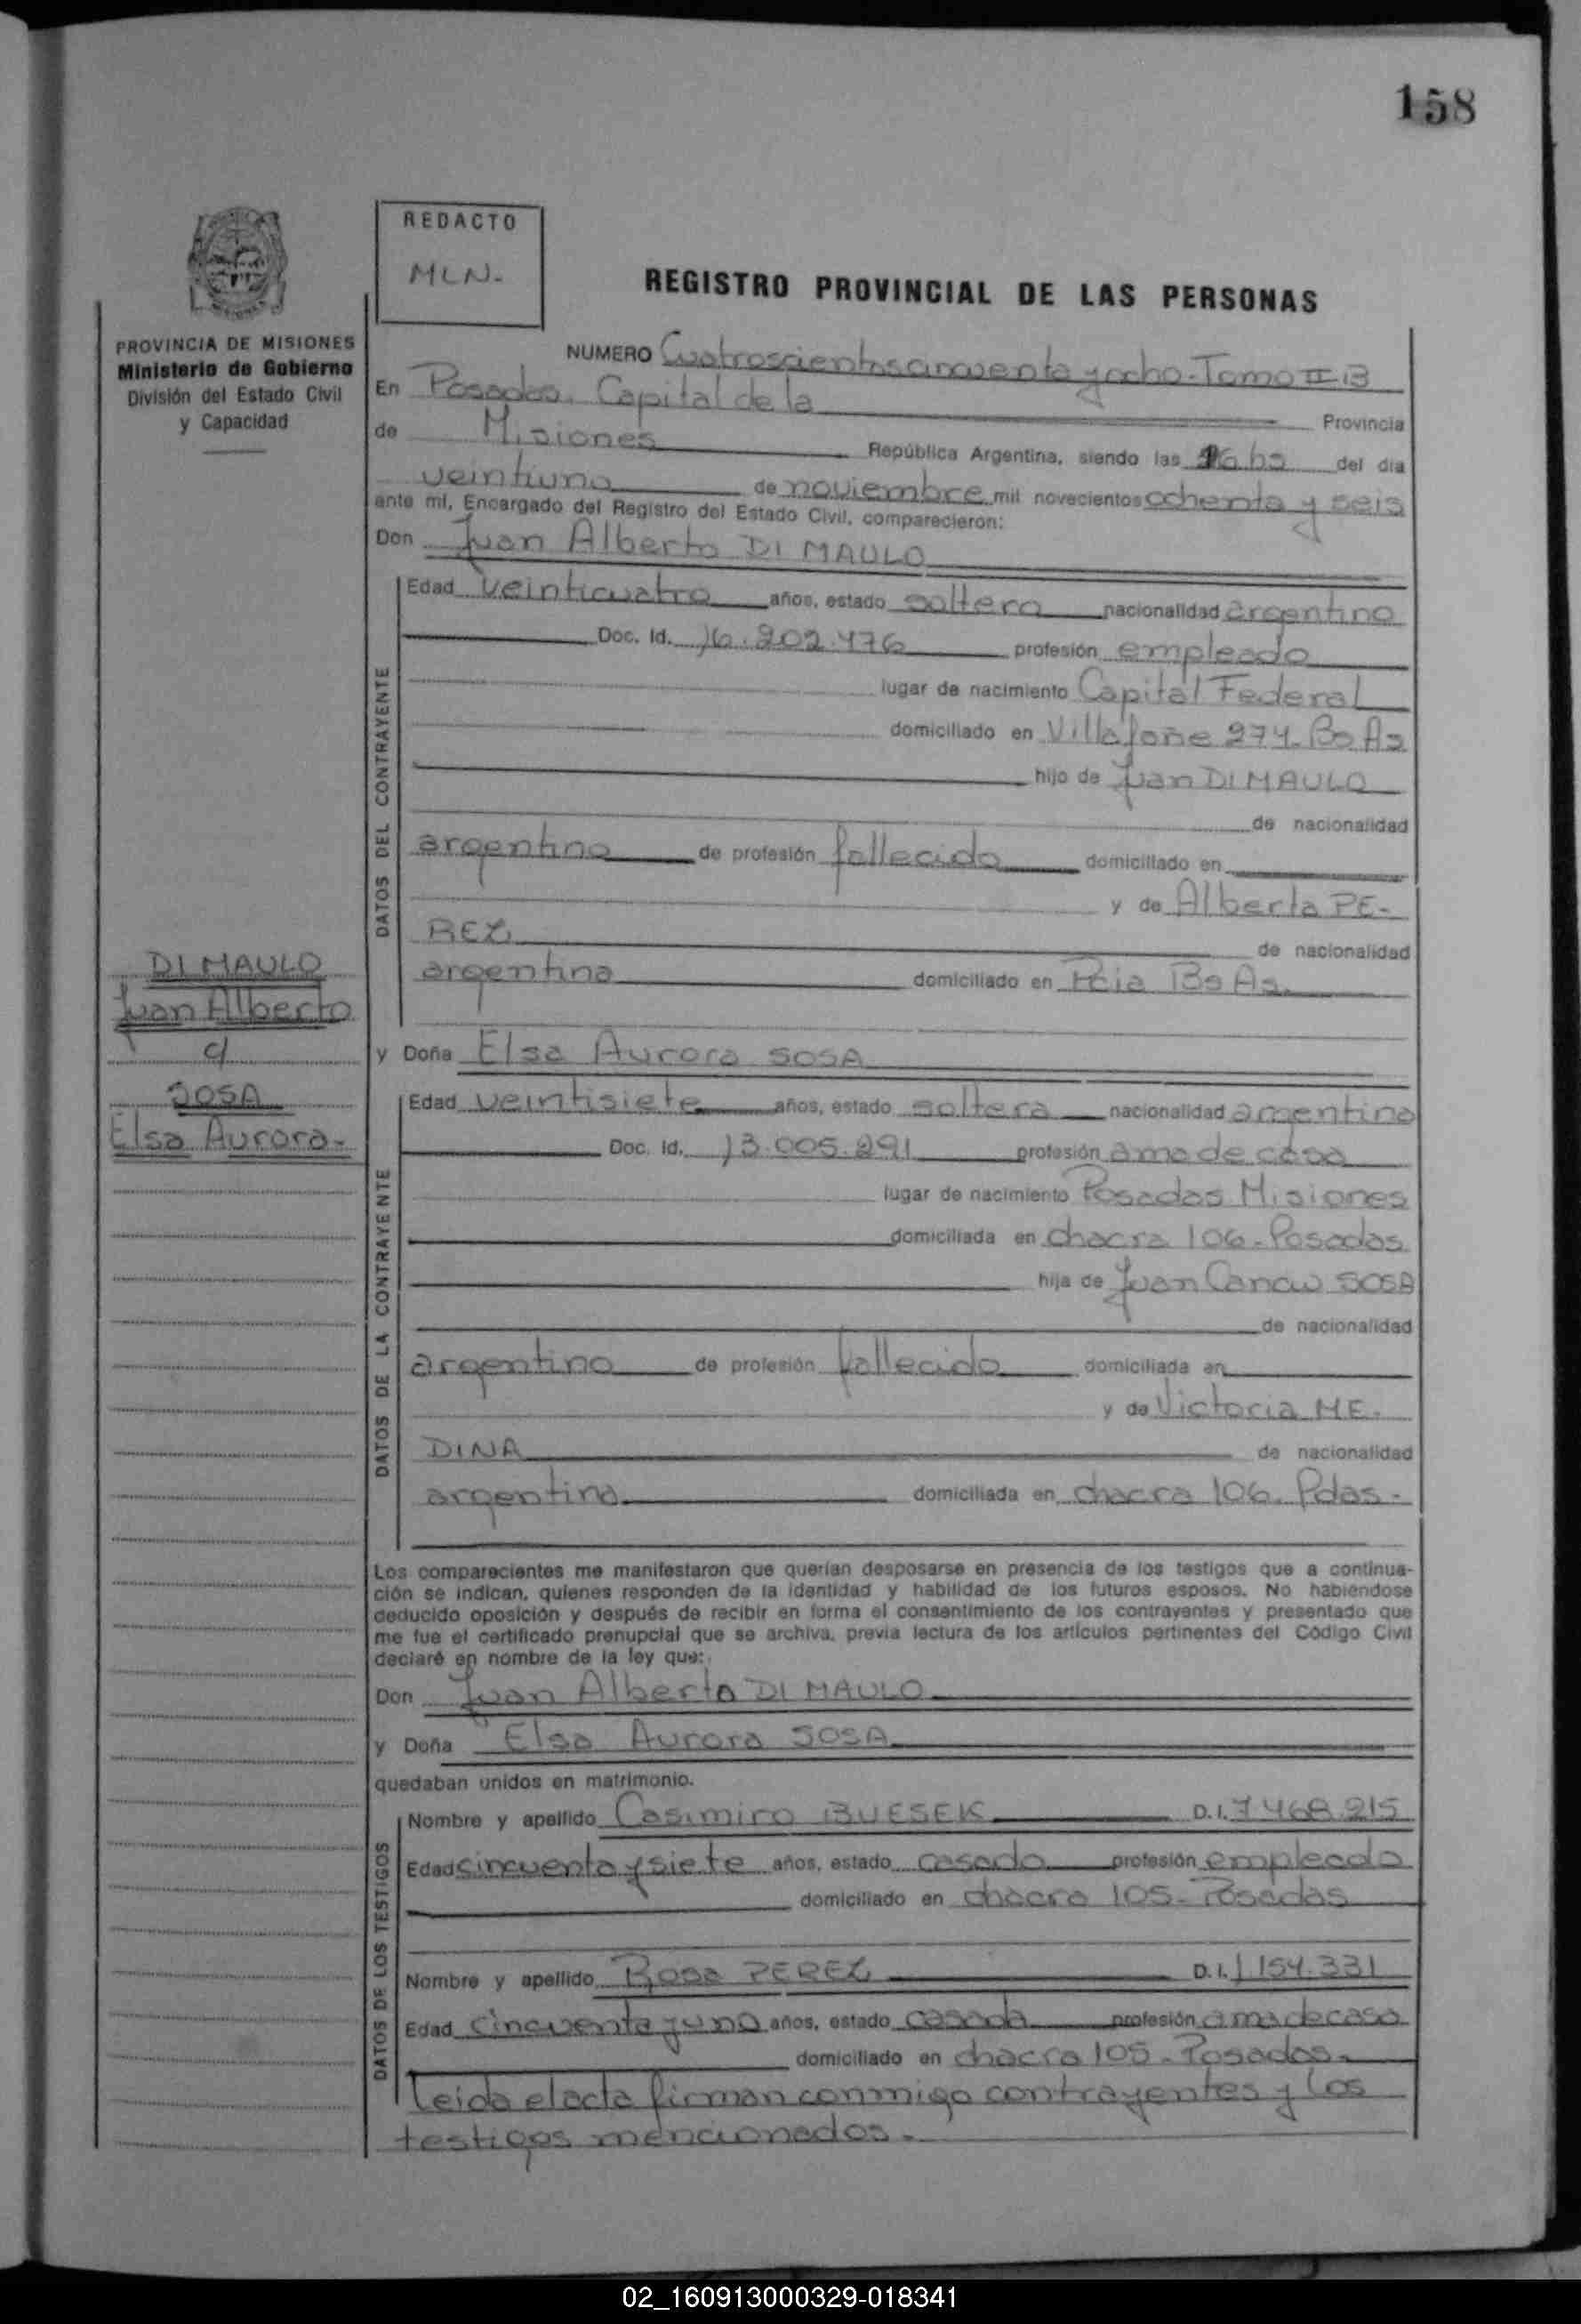 158
REDACTO
MLN.
REGISTRO PROVINCIAL DE LAS PERSONAS
PROVINCIA DE MISIONES
Ministerio de Gobierno
División del Estado Civil
y Capacidad
NUMERO Cuatroscientos cincuenta y ocho - Tomo II B
En Posadas, Capital de la Provincia
de Misiones República Argentina, siendo las 16 hs del día
veintiuno de noviembre mil novecientos ochenta y seis
ante mí, Encargado del Registro del Estado Civil, comparecieron:
Don Juan Alberto DI MAULO
DATOS DEL CONTRAYENTE
Edad veinticuatro años, estado soltero nacionalidad argentino
Doc. Id. 16.202.476 profesión empleado
lugar de nacimiento Capital Federal
domiciliado en Villafañe 274 - Bs As
hijo de Juan DI MAULO
de nacionalidad
argentino de profesión fallecido domiciliado en
y de Alberta PE-
REZ de nacionalidad
argentina domiciliado en Pcia Bs As.
DI MAULO
Juan Alberto
c/
SOSA
Elsa Aurora-
y Doña Elsa Aurora SOSA
DATOS DE LA CONTRAYENTE
Edad veintisiete años, estado soltera nacionalidad argentina
Doc. Id. 13.005.291 profesión ama de casa
lugar de nacimiento Posadas Misiones
domiciliada en chacra 106 - Posadas
hija de Juan SOSA
de nacionalidad
argentino de profesión fallecido domiciliada en
y de Victoria ME-
DINA de nacionalidad
argentina domiciliada en chacra 106. Pdas.-
Los comparecientes me manifestaron que querían desposarse en presencia de los testigos que a continua-
ción se indican, quienes responden de la identidad y habilidad de los futuros esposos. No habiéndose
deducido oposición y después de recibir en forma el consentimiento de los contrayentes y presentado que
me fue el certificado prenupcial que se archiva, previa lectura de los artículos pertinentes del Código Civil
declaré en nombre de la ley que:
Don Juan Alberto DI MAULO
y Doña Elsa Aurora SOSA
quedaban unidos en matrimonio.
DATOS DE LOS TESTIGOS
Nombre y apellido Casimiro BUESEK D.I. 7.468.215
Edad cincuenta y siete años, estado casado profesión empleado
domiciliado en chacra 105 - Posadas
Nombre y apellido Rosa PEREZ D.I. 1.154.331
Edad cincuenta y uno años, estado casada profesión ama de casa
domiciliado en chacra 105 - Posadas.
Leida el acta firman conmigo contrayentes y los
testigos mencionados.
02_160913000329-018341